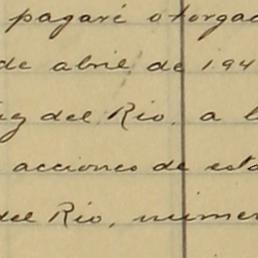 pagaré otorgad
de abril, de 194
ez del Rio, a l
acciones de esta
del Rio, númer